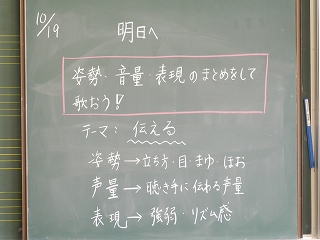 10/19
明日へ
姿勢・音量・表現のまとめをして
歌おう!
テーマ: 伝える
姿勢→立ち方・目・まゆ・ほお
声量→聴き手に伝わる声量
表現→強弱・リズム感